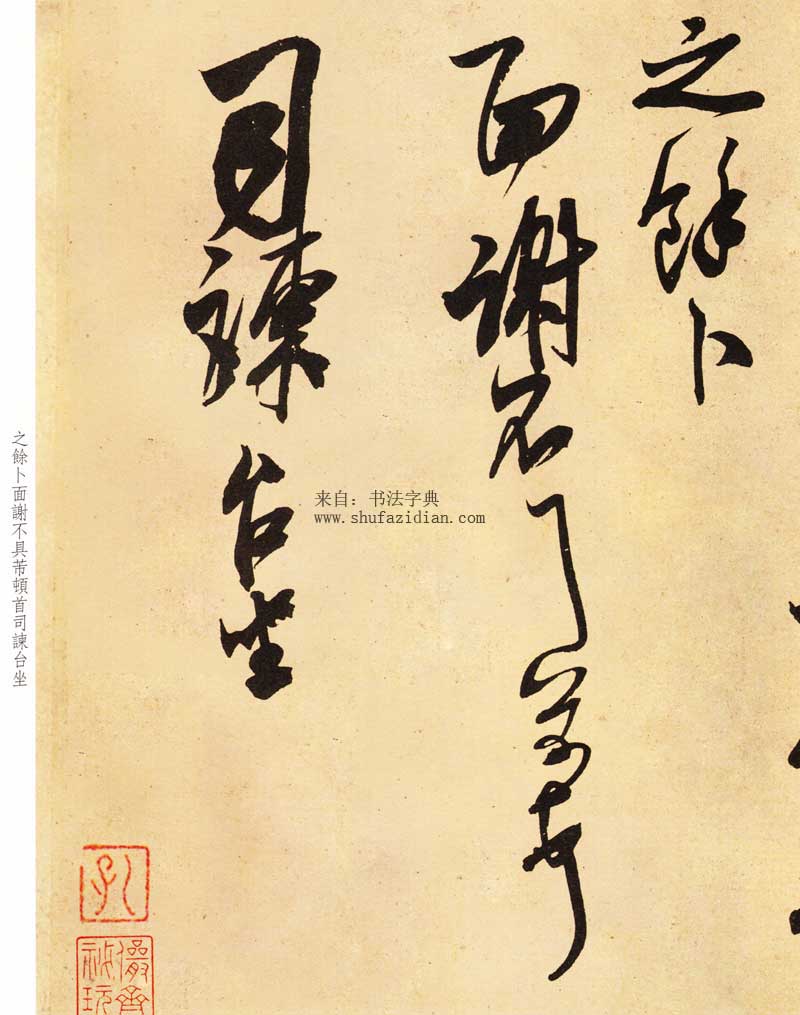 之餘卜
面謝不具芾頓首
司諫台坐
来自：书法字典
www.shufazidian.com
之餘卜面謝不具芾頓首司諫台坐